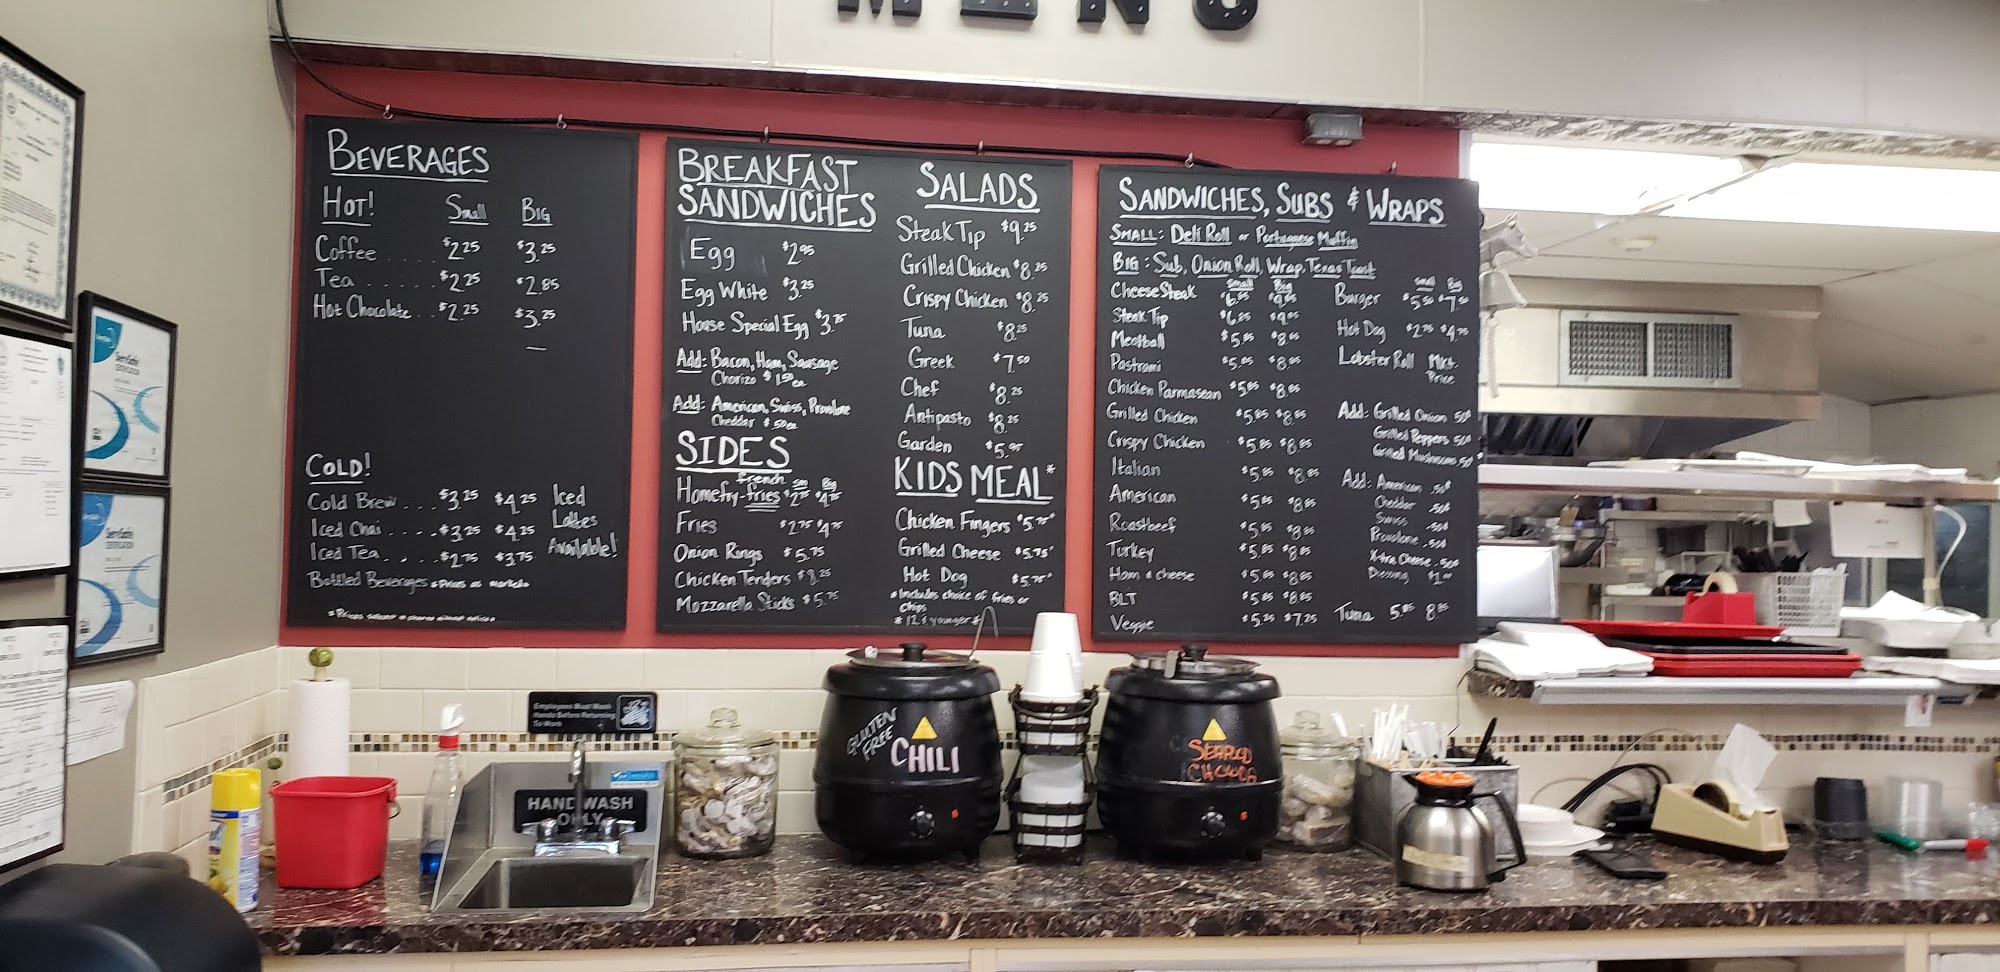 MENU
BEVERAGES
HOT! Small BIG
Coffee .... $2.25 $3.25
Tea ...... $2.25 $2.85
Hot Chocolate .. $2.25 $3.25
COLD!
Cold Brew ... $3.25 $4.25
Iced Chai ..... $3.25 $4.25
Iced Tea .... $2.75 $3.75
Iced
Lattes
Available!
Bottled Beverages * Prices as marked *
BREAKFAST
SANDWICHES
Egg $2.95
Egg White $3.25
House Special Egg $3.75
Add: Bacon, Ham, Sausage
Chorizo $1.50 ea
Add: American, Swiss, Provolone
Cheddar $.50 ea
SIDES
french sm Big
Homefry-fries $2.75 $4.75
Fries $2.75 $4.75
Onion Rings $5.75
Chicken Tenders $8.25
Mozzarella Sticks $5.75
SALADS
Steak Tip $9.25
Grilled Chicken $8.25
Crispy Chicken $8.25
Tuna $8.25
Greek $7.50
Chef $8.25
Antipasto $8.25
Garden $5.95
KIDS MEAL*
Chicken Fingers $5.75*
Grilled Cheese $5.75*
Hot Dog $5.75*
* Includes choice of fries or
chips
* 12 & younger *
SANDWICHES, SUBS & WRAPS
SMALL: Deli Roll or Portuguese Muffin
BIG: Sub, Onion Roll, Wrap, Texas Toast
small Big
CheeseSteak $6.85 $9.85
Steak Tip $6.85 $9.85
Meatball $5.85 $8.85
Pastrami $5.85 $8.85
Chicken Parmasean $5.85 $8.85
Grilled Chicken $5.85 $8.85
Crispy Chicken $5.85 $8.85
Italian $5.85 $8.85
American $5.85 $8.85
Roastbeef $5.85 $8.85
Turkey $5.85 $8.85
Ham & cheese $5.85 $8.85
BLT $5.85 $8.85
Veggie $5.25 $7.25
small Big
Burger $5.50 $7.50
Hot Dog $2.75 $4.75
Lobster Roll Mkt.
Price
Add: Grilled Onion .50¢
Grilled Peppers .50¢
Grilled Mushrooms .50¢
Add: American .50¢
Cheddar .50¢
Swiss .50¢
Provolone .50¢
X-tra Cheese .50¢
Dressing $1.00
Tuna 5.85 8.85
Employees Must Wash
Hands Before Returning
To Work
HANDWASH
ONLY
GLUTEN
FREE
CHILI
SEAFOOD
CHOWDA
ServSafe
CERTIFICATION
ServSafe
CERTIFICATION